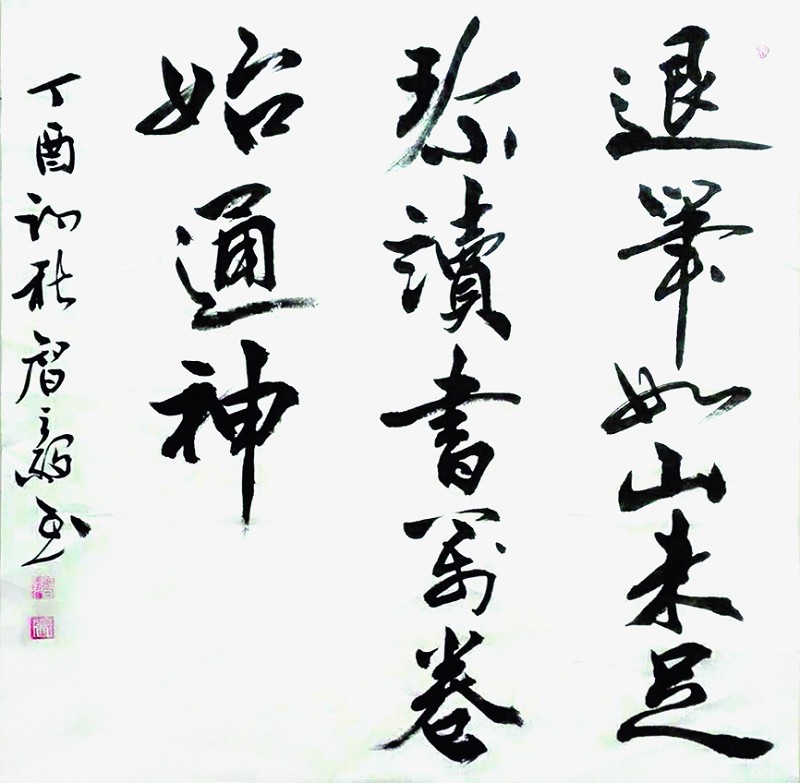 退筆如山未足
珍讀書萬卷
始通神
丁酉初秋